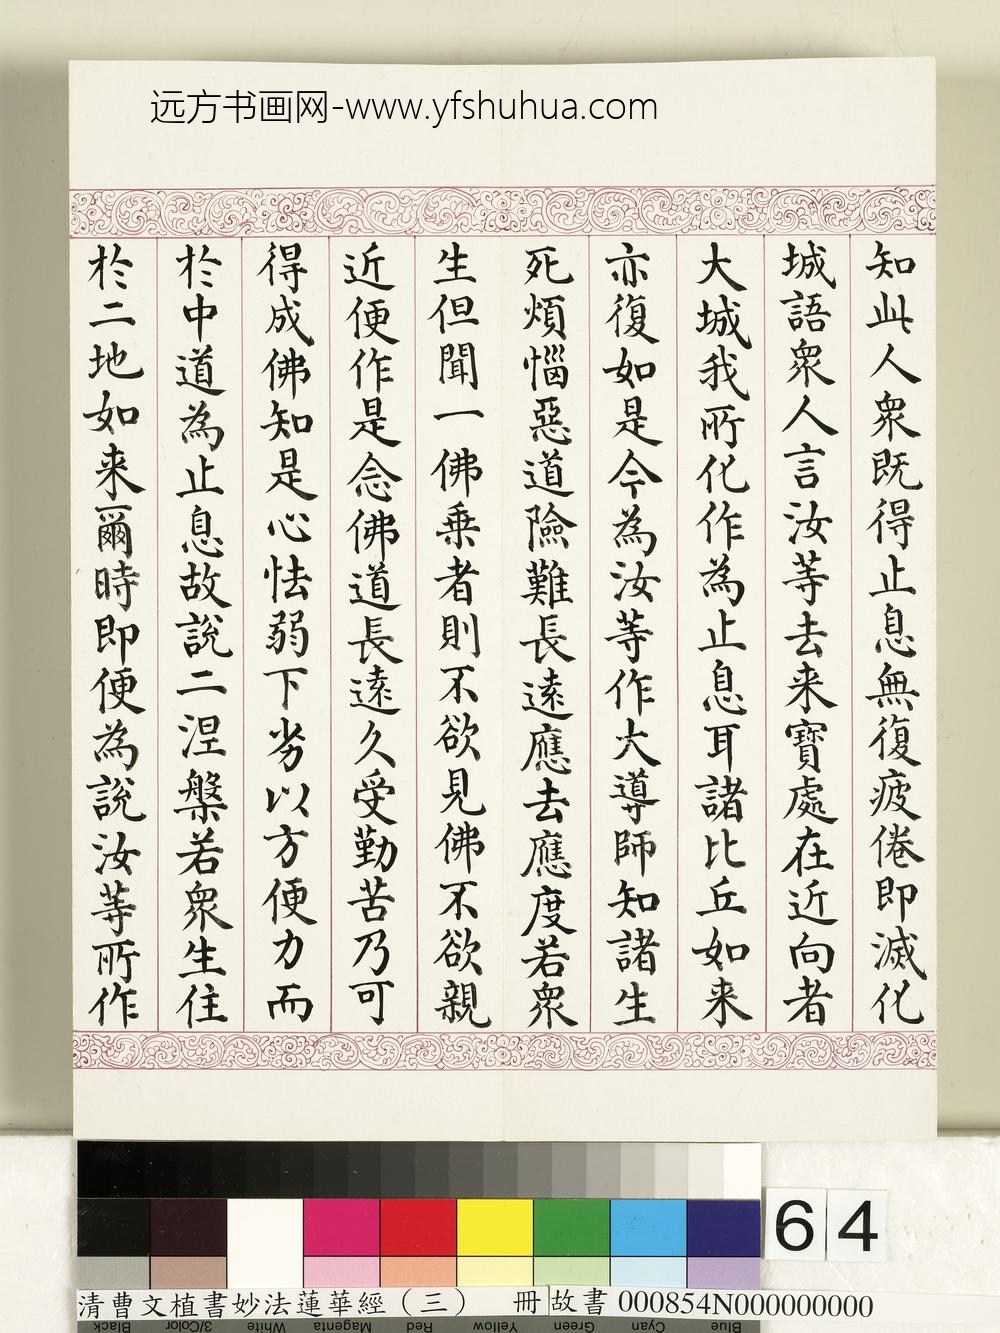 远方书画网-www.yfshuhua.com
知此人衆既得止息無復疲倦即滅化
城語衆人言汝等去来寶處在近向者
大城我所化作為止息耳諸比丘如来
亦復如是今為汝等作大導師知諸生
死煩惱惡道險難長遠應去應度若衆
生但聞一佛乗者則不欲見佛不欲親
近便作是念佛道長遠久受勤苦乃可
得成佛知是心怯弱下劣以方便力而
於中道為止息故說二涅槃若衆生住
於二地如来爾時即便為說汝等所作
64
清曹文植書妙法蓮華經（三） 冊 故書 000854N000000000
Black 3/Color White Magenta Red Yellow Green Cyan Blue